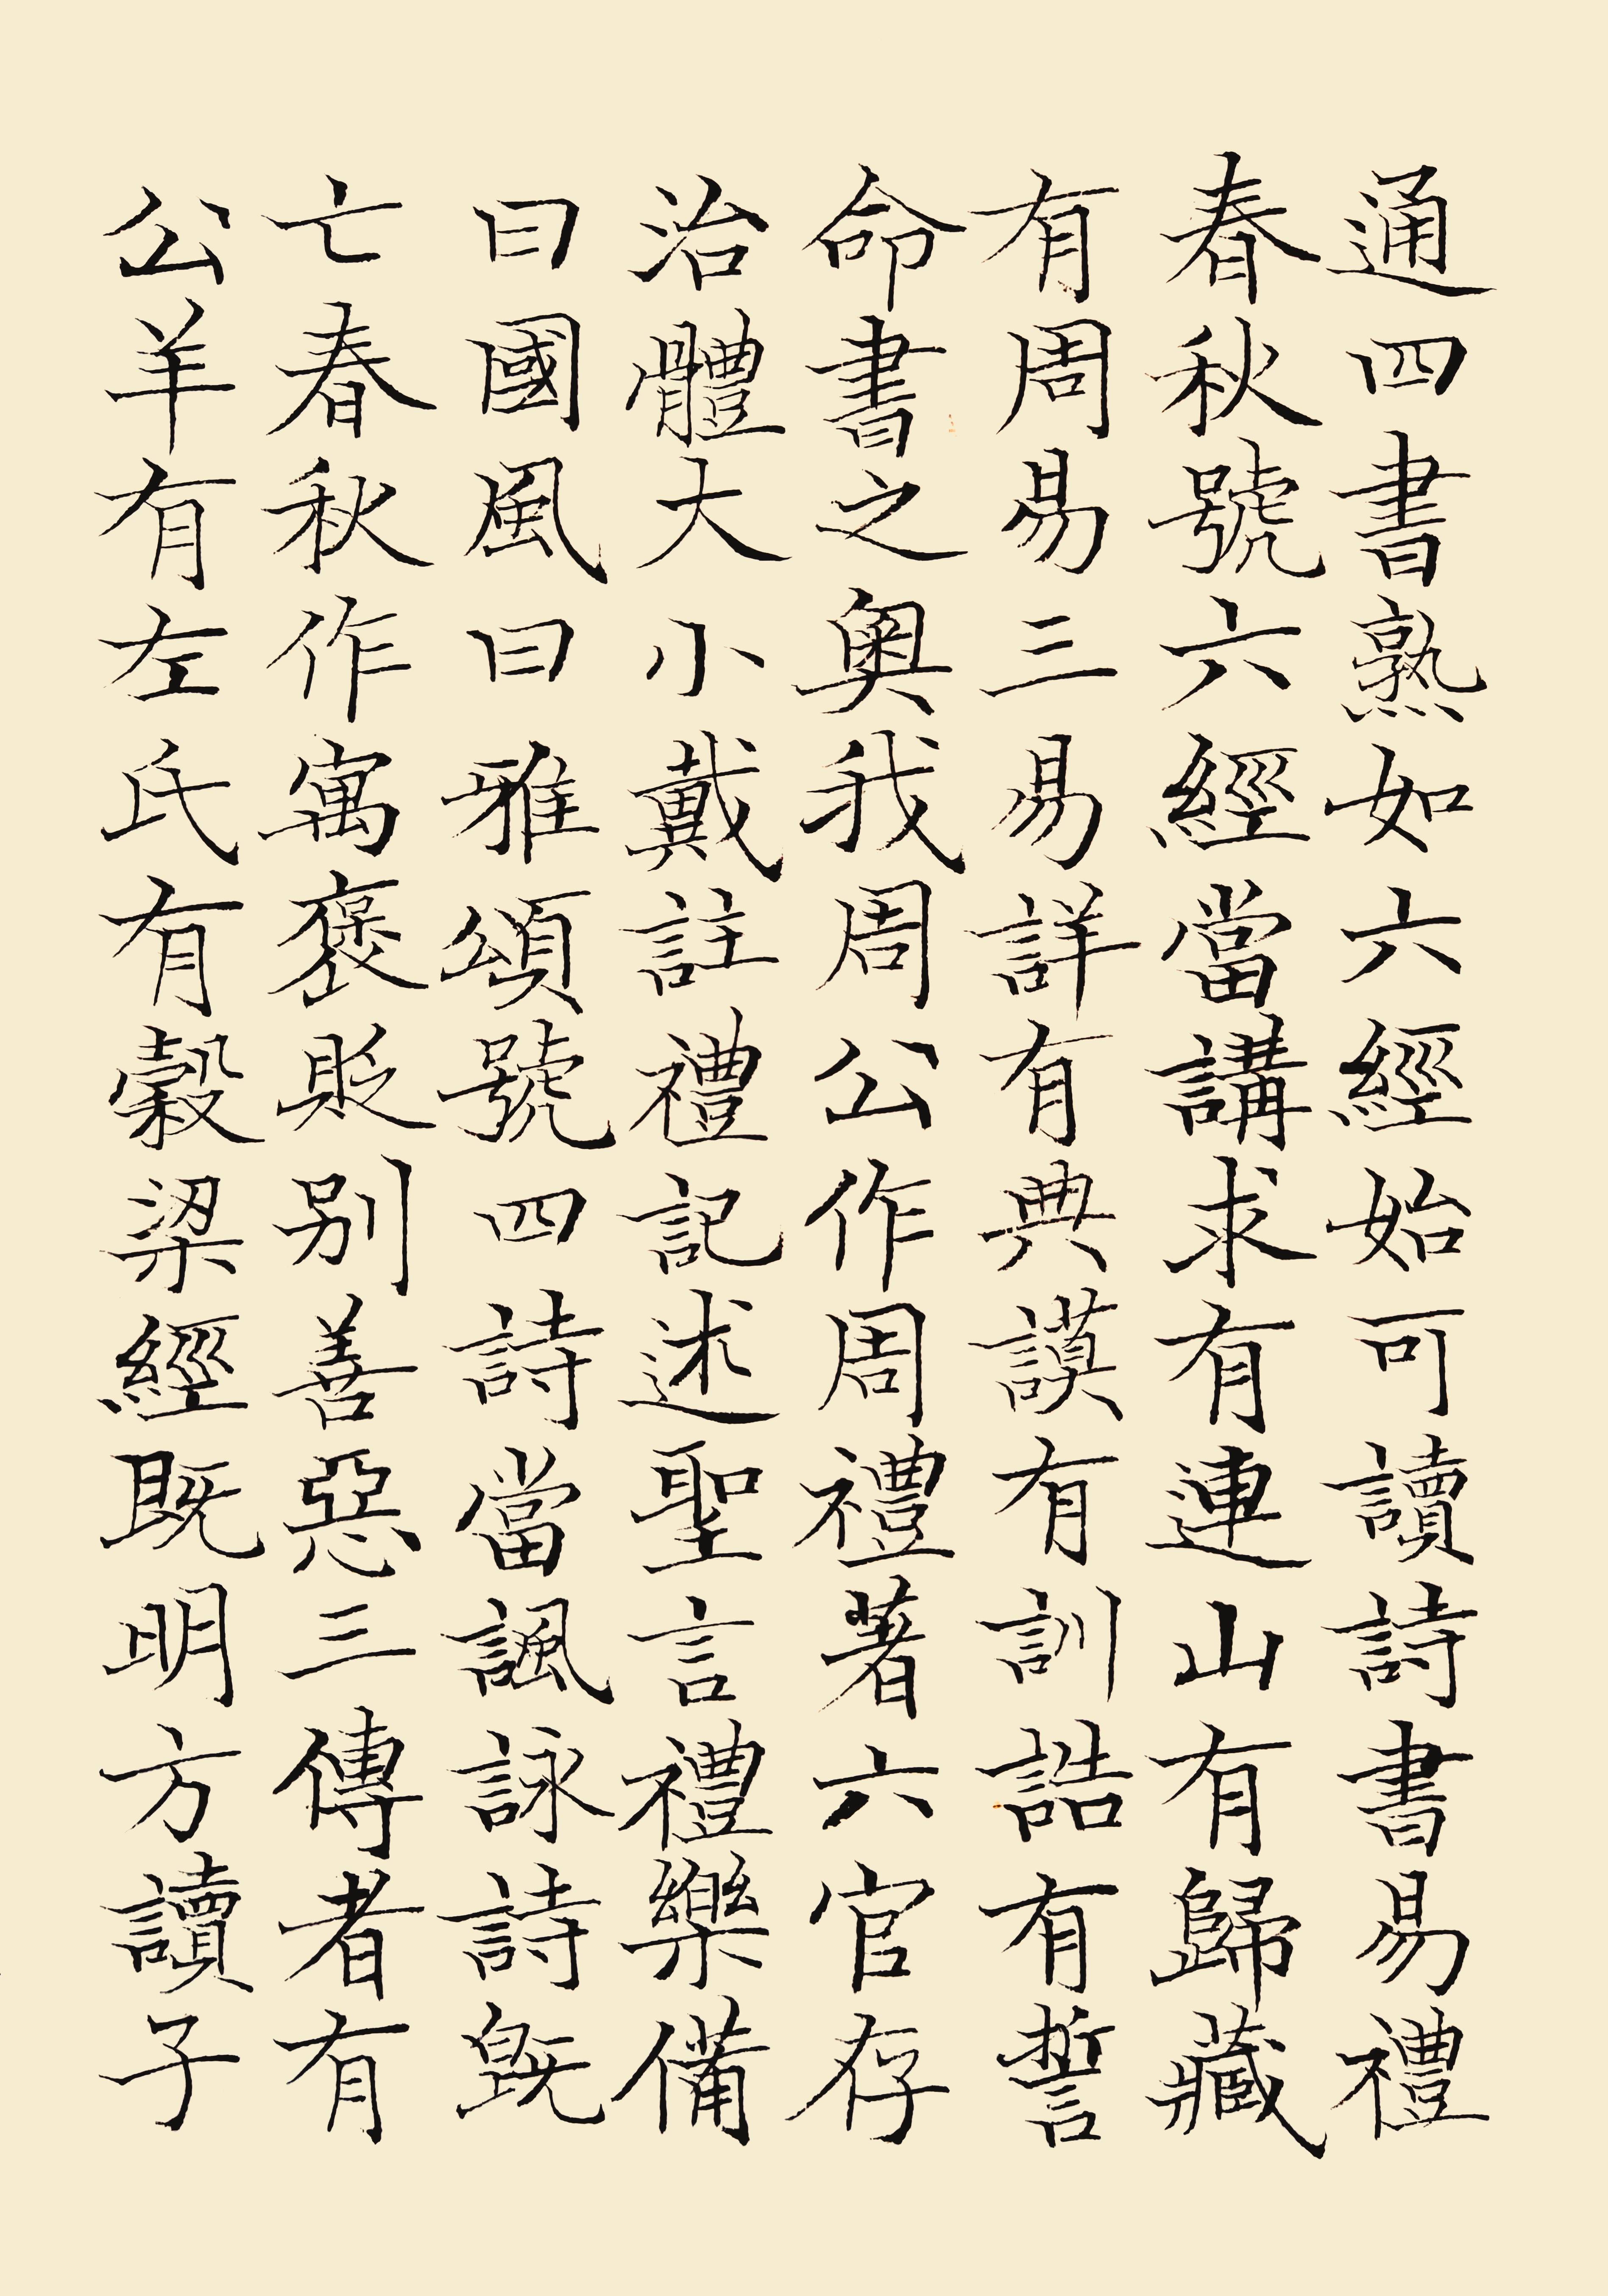 通四書熟如六經始可讀詩書易禮
春秋號六經當講求有連山有歸藏
有周易三易詳有典謨有訓誥有誓
命書之奧我周公作周禮著六官存
治體大小戴註禮記述聖言禮樂備
曰國風曰雅頌號四詩當諷詠詩既
亡春秋作寓褒貶別善惡三傳者有
公羊有左氏有穀梁經既明方讀子